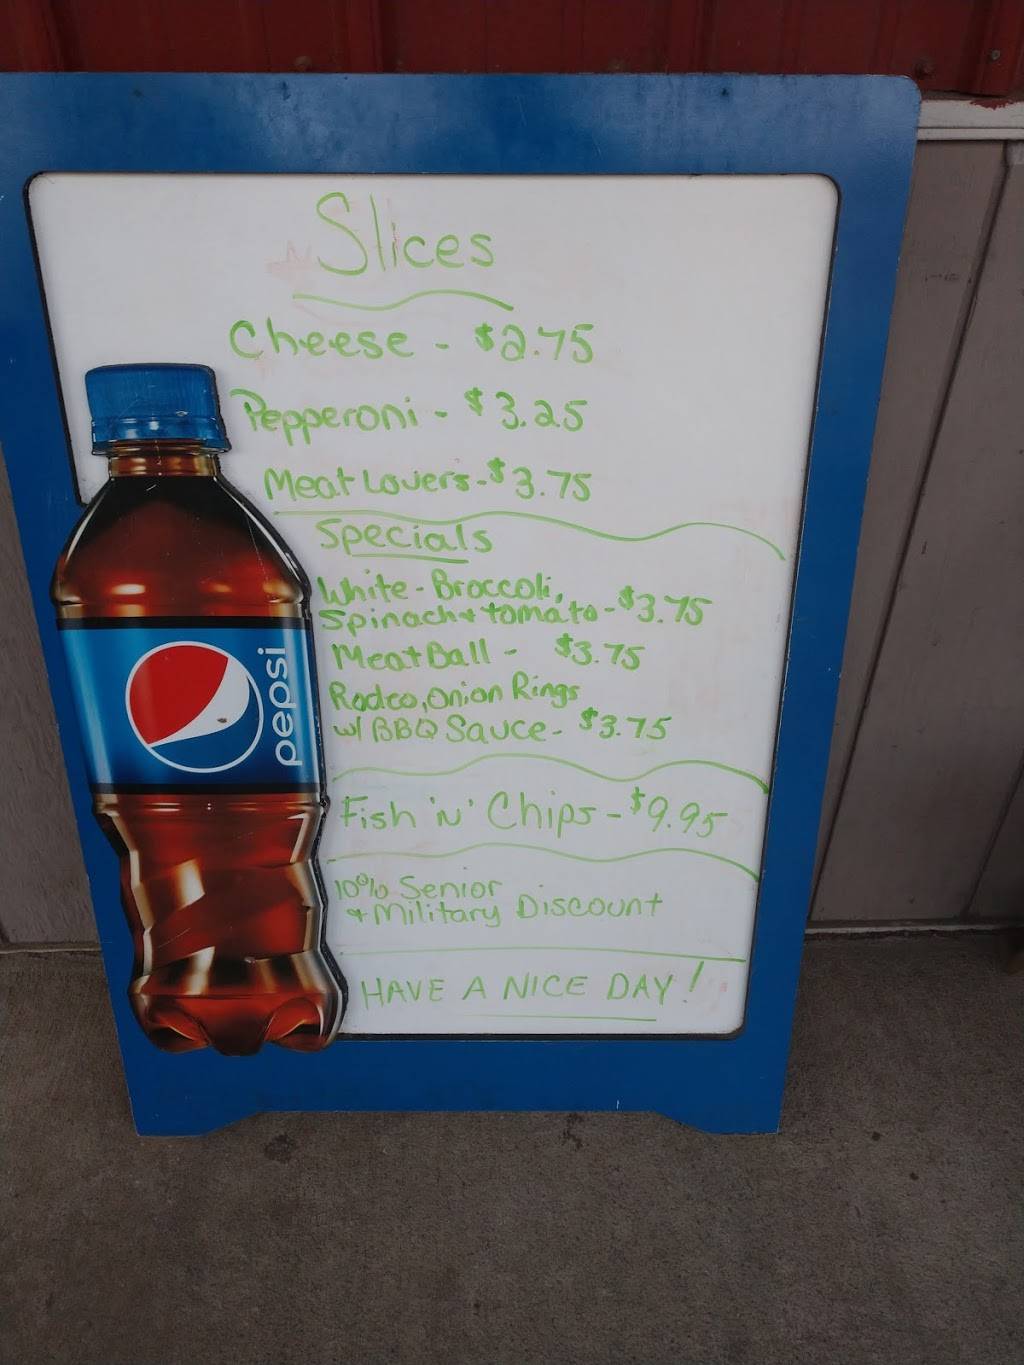 Slices
Cheese - $2.75
Pepperoni - $3.25
Meat Lovers - $3.75
Specials
White - Broccoli,
Spinach + tomato - $3.75
Meat Ball - $3.75
Rodeo, Onion Rings
w/ BBQ Sauce - $3.75
Fish 'N' Chips - $9.95
10% Senior
+ Military Discount
HAVE A NICE DAY!
pepsi